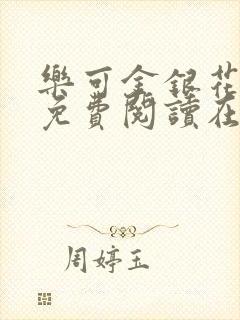 樂可金銀花
免費閱讀在
周婷玉